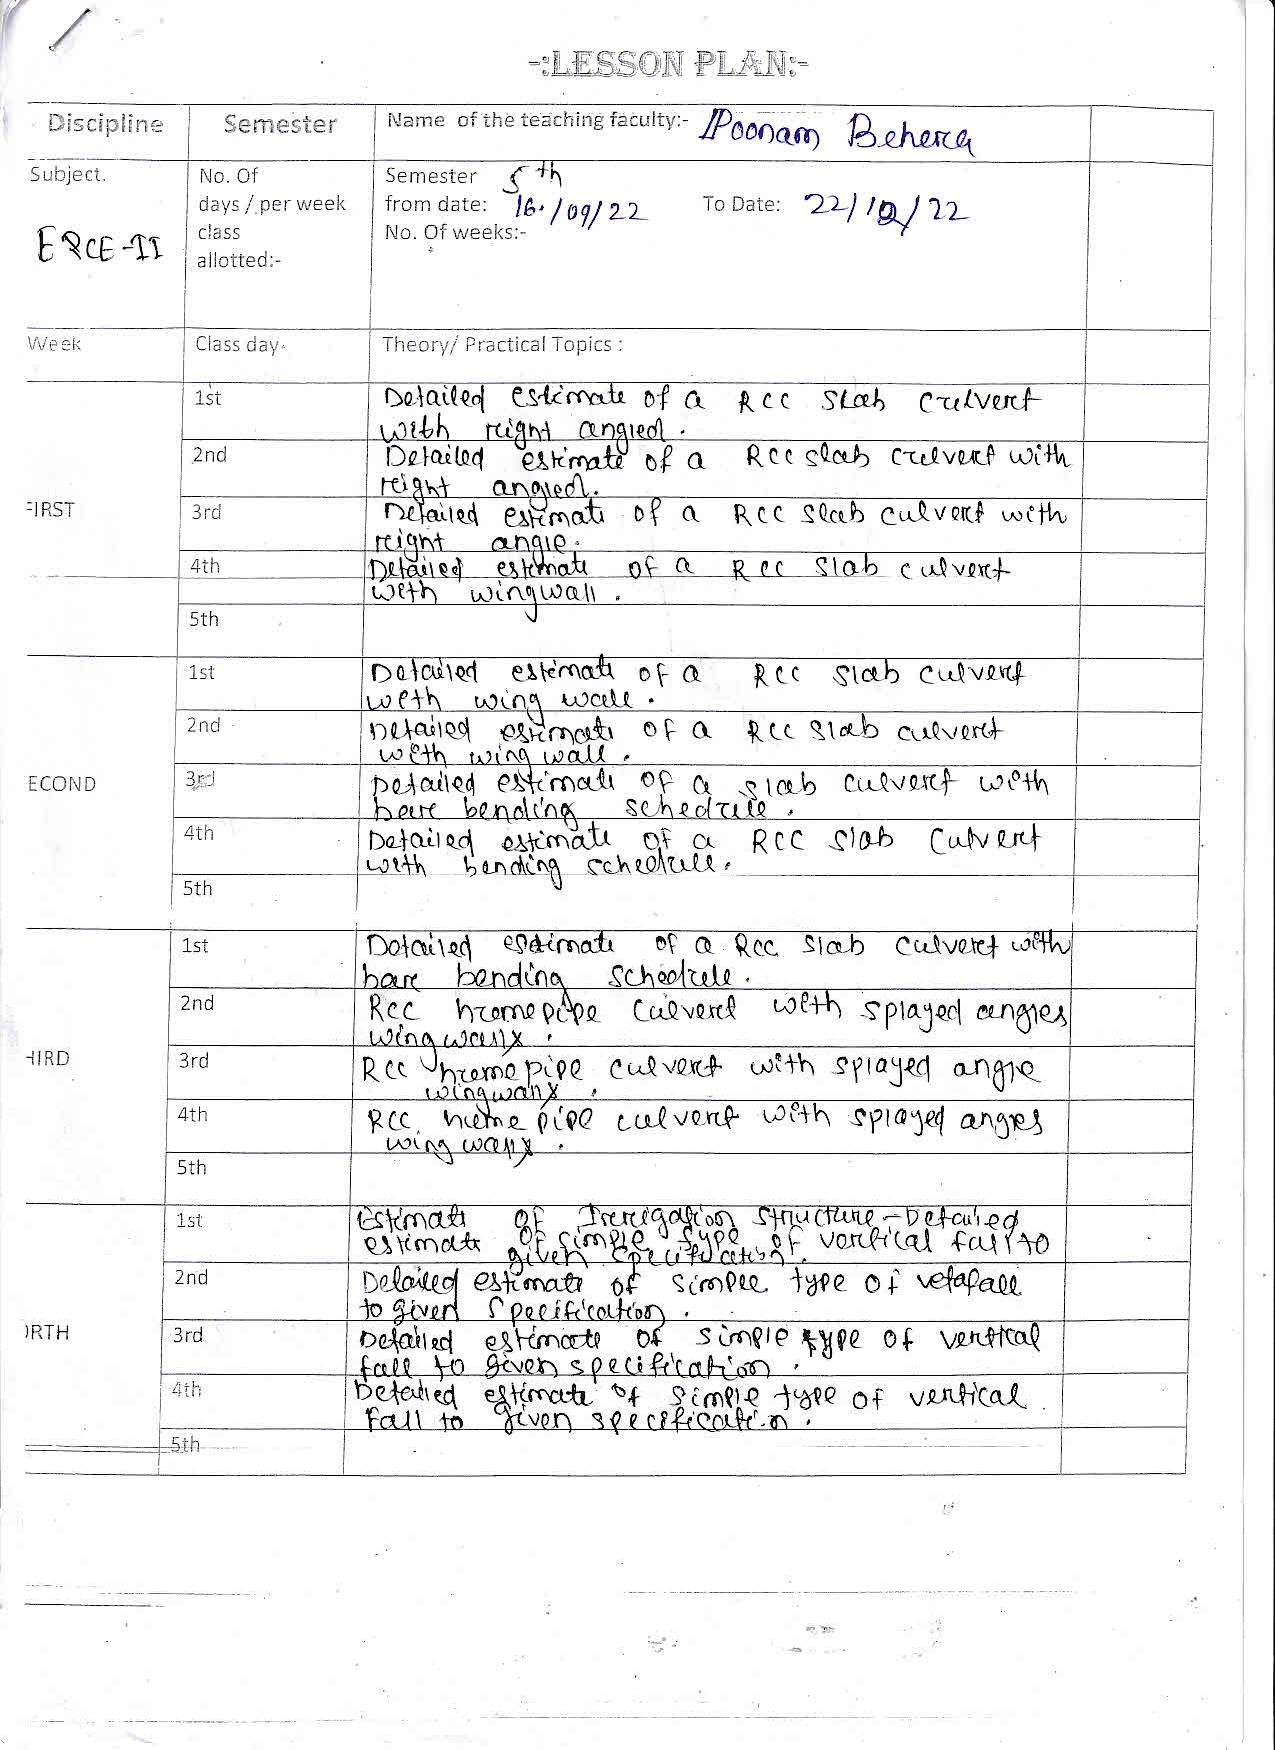 -:LESSON PLAN:-
Discipline Semester Name of the teaching faculty:- Poonam Behera
Subject. No. Of Semester 5th
days / per week from date: 16./09/22 To Date: 22/12/22
ECCE-II class No. Of weeks:-
allotted:-
Week Class day- Theory/ Practical Topics :
1st Detailed estimate of a RCC slab culvert
with right angled.
2nd Detailed estimate of a RCC slab culvert with
right angled.
FIRST 3rd Detailed estimate of a RCC slab culvert with
right angle.
4th Detailed estimate of a RCC slab culvert
with wingwall.
5th
1st Detailed estimate of a RCC slab culvert
with wing wall.
2nd Detailed estimate of a RCC slab culvert
with wing wall.
ECOND 3rd Detailed estimate of a slab culvert with
bar bending schedule.
4th Detailed estimate of a RCC slab culvert
with bending schedule.
5th
1st Detailed estimate of a RCC slab culvert with
bar bending schedule.
2nd RCC hume pipe culvert with splayed angles
wing wall
HIRD 3rd RCC hume pipe culvert with splayed angle
wingwall
4th RCC hume pipe culvert with splayed angles
wing wall
5th
1st Estimate of Irrigation structure - Detailed
estimate of simple type of vertical fall to
given specification.
2nd Detailed estimate of simple type of
to given specification.
ORTH 3rd Detailed estimate of simple type of vertical
fall to given specification.
4th Detailed estimate of simple type of vertical
fall to given specification.
5th